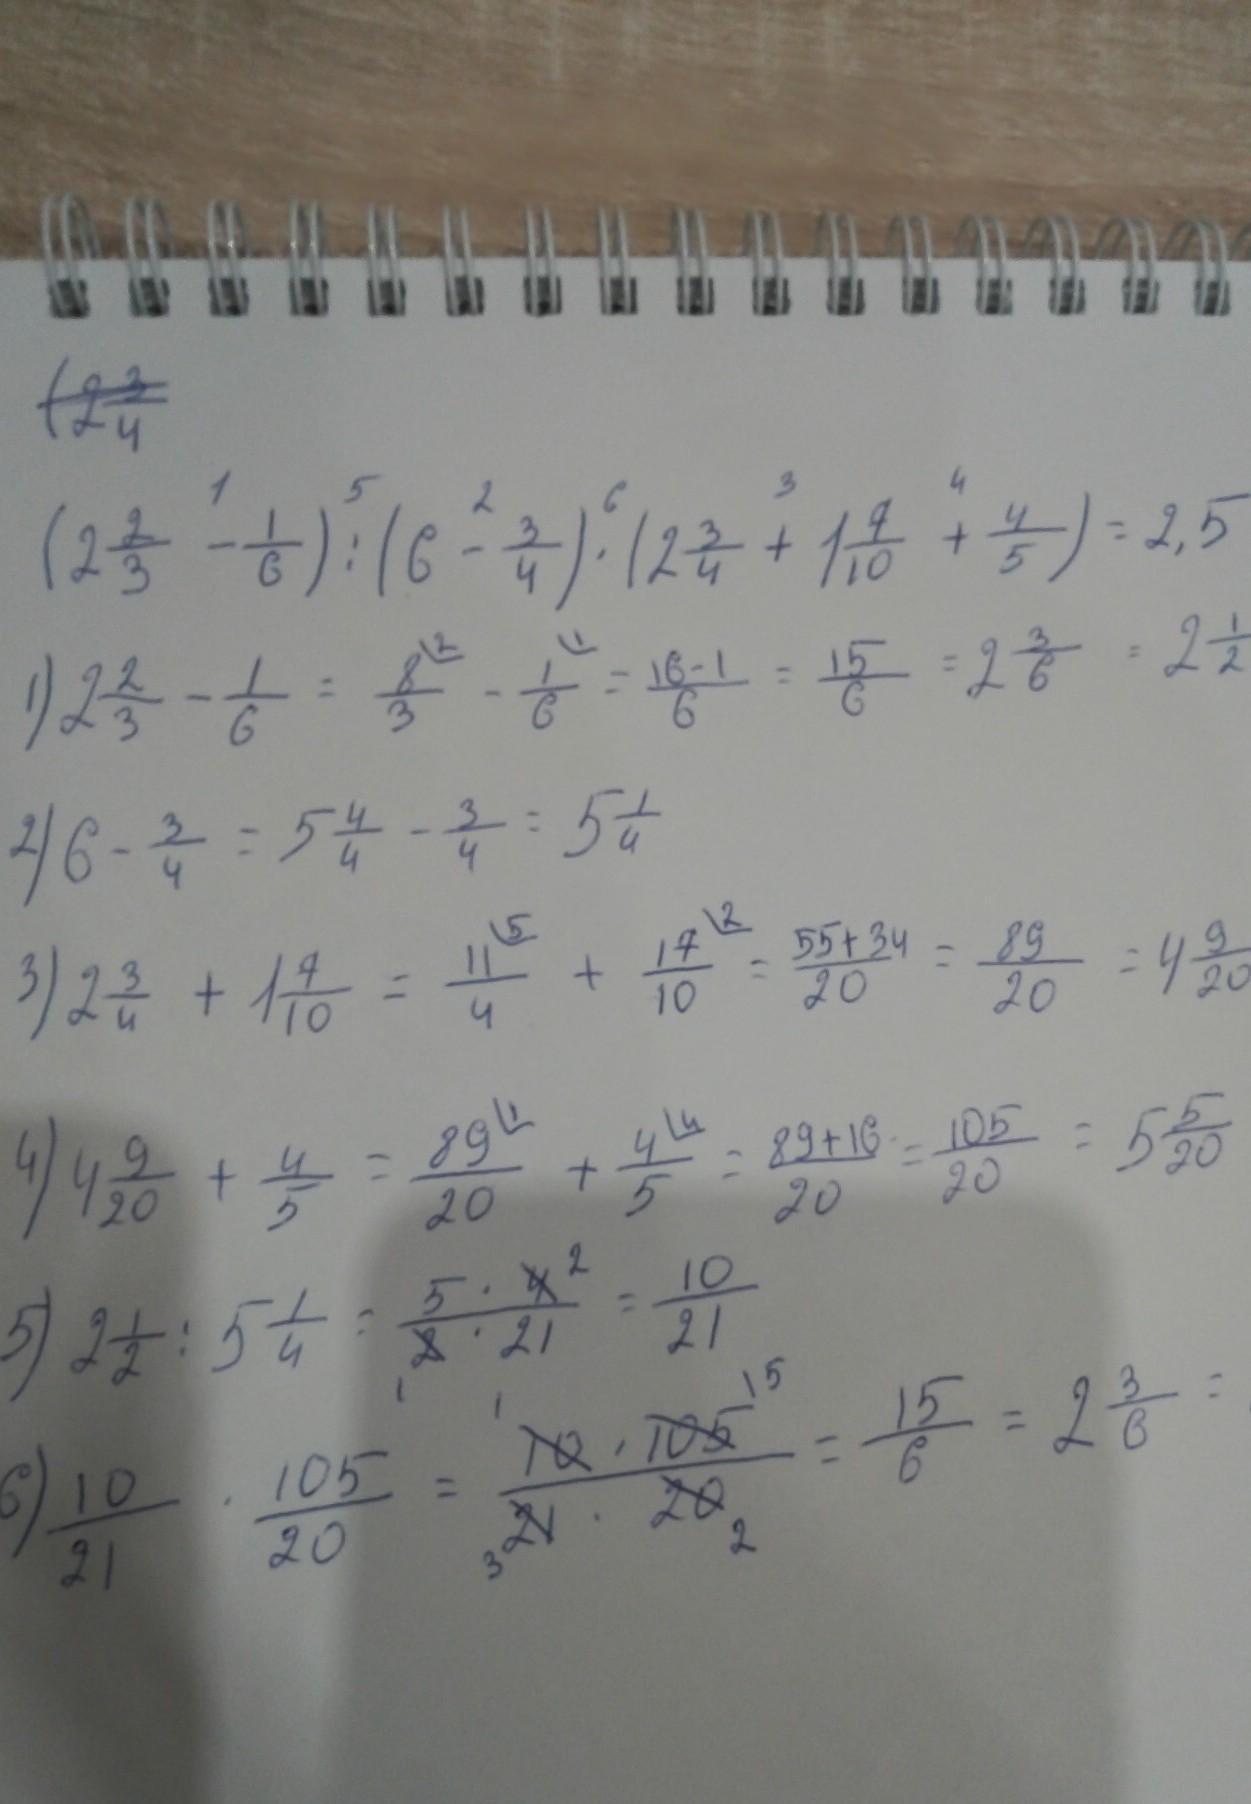 (2 3/4
(2 2/3 - 1/6) : (6 - 3/4) · (2 3/4 + 1 7/10 + 4/5) = 2,5
1) 2 2/3 - 1/6 = 8/3 - 1/6 = 16-1/6 = 15/6 = 2 3/6 = 2 1/2
2) 6 - 3/4 = 5 4/4 - 3/4 = 5 1/4
3) 2 3/4 + 1 7/10 = 11/4 + 17/10 = 55+34/20 = 89/20 = 4 9/20
4) 4 9/20 + 4/5 = 89/20 + 4/5 = 89+16/20 = 105/20 = 5 5/20
5) 2 1/2 : 5 1/4 = 5 · 4/2 · 21 = 10/21
6) 10/21 · 105/20 = 10 · 105/21 · 20 = 15/6 = 2 3/6 =